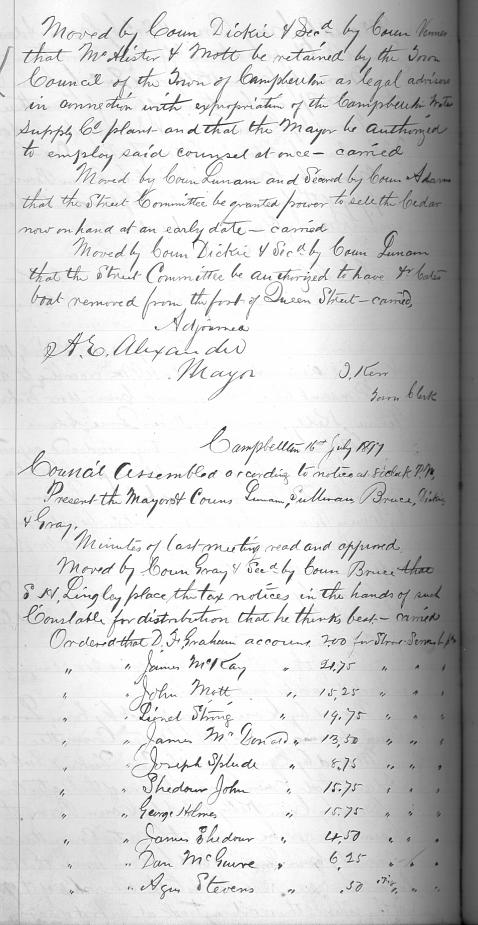 Moved by Coun Dickie & Secd by Coun Venner
that McAlister & Mott be retained by the Town
Council of the Town of Campbellton as legal advisers
in connection with expropriation of the Campbellton Water
Supply Co plant and that the Mayor be authorized
to employ said counsel at once – carried
Moved by Coun Lunam and Secored by Coun Adams
that the Street Committee be granted power to sell the Cedar
now on hand at an early date – carried
Moved by Coun Dickie & Secd by Coun Lunam
that the Street Committee be authorized to have
boat removed from the foot of Queen Street – carried,
Adjourned
A. E. Alexander
Mayor
J. Kerr
Town Clerk
Campbellton 16th July 1897
Council assembled according to notice at 8 o'clock P.M,
Present the Mayor & Couns Lunam, Sullivan Bruce, Dickie
& Gray.
Minutes of last meeting read and approved,
Moved by Coun Gray & Secd by Coun Bruce that
Lingley place the tax notices in the hands of such
Constable for distribution that he thinks best – carried
Ordered that D. F. Graham account 200 for
" " James McKay " 21.75 " " "
" " John Mott " 15.25 " " "
" " Lionel Strong " 19.75 " " "
" " James McDonald " 13.50 " " "
" " Joseph Splude " 8.75 " " "
" " John " 15.75 " " "
" " George Holmes " 15.75 " " "
" " James " 4.50 " " "
" " Dan McGuire " 6.25 " " "
" " Agus Stevens " .50 " " "